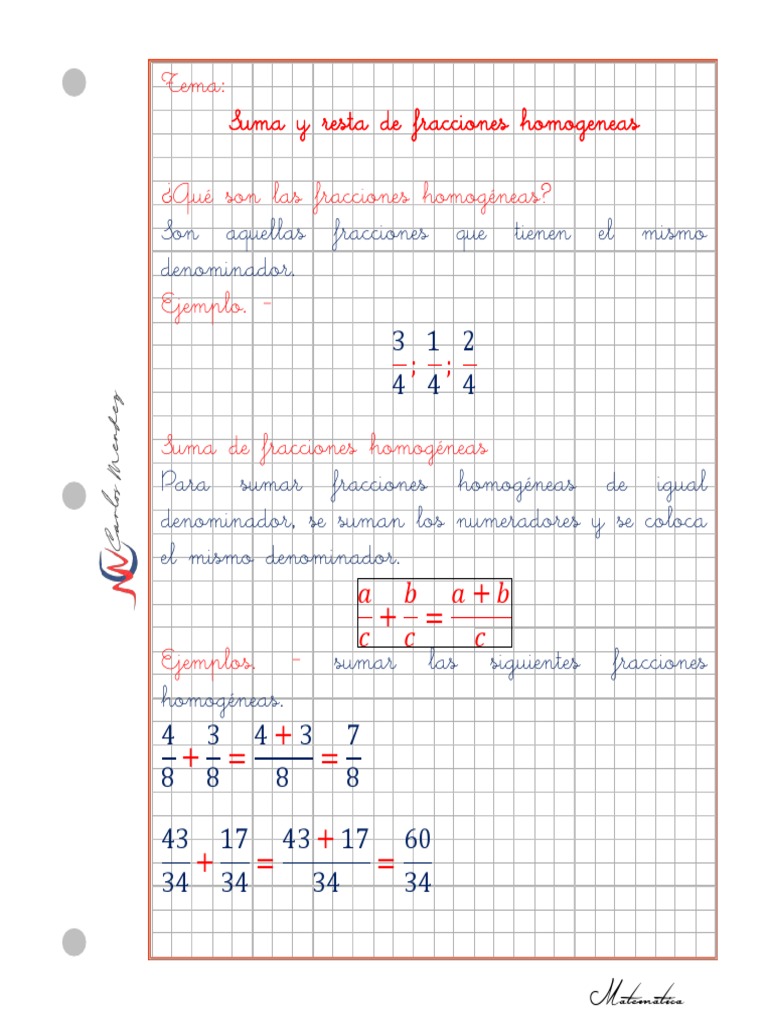 Tema:
Suma y resta de fracciones homogeneas
¿Qué son las fracciones homogéneas?
Son aquellas fracciones que tienen el mismo
denominador.
Ejemplo. -
3/4 ; 1/4 ; 2/4
Suma de fracciones homogéneas
Para sumar fracciones homogéneas de igual
denominador, se suman los numeradores y se coloca
el mismo denominador.
a/c + b/c = (a + b)/c
Ejemplos. - sumar las siguientes fracciones
homogéneas.
4/8 + 3/8 = (4 + 3)/8 = 7/8
43/34 + 17/34 = (43 + 17)/34 = 60/34
Carlos Mendez
Matemática